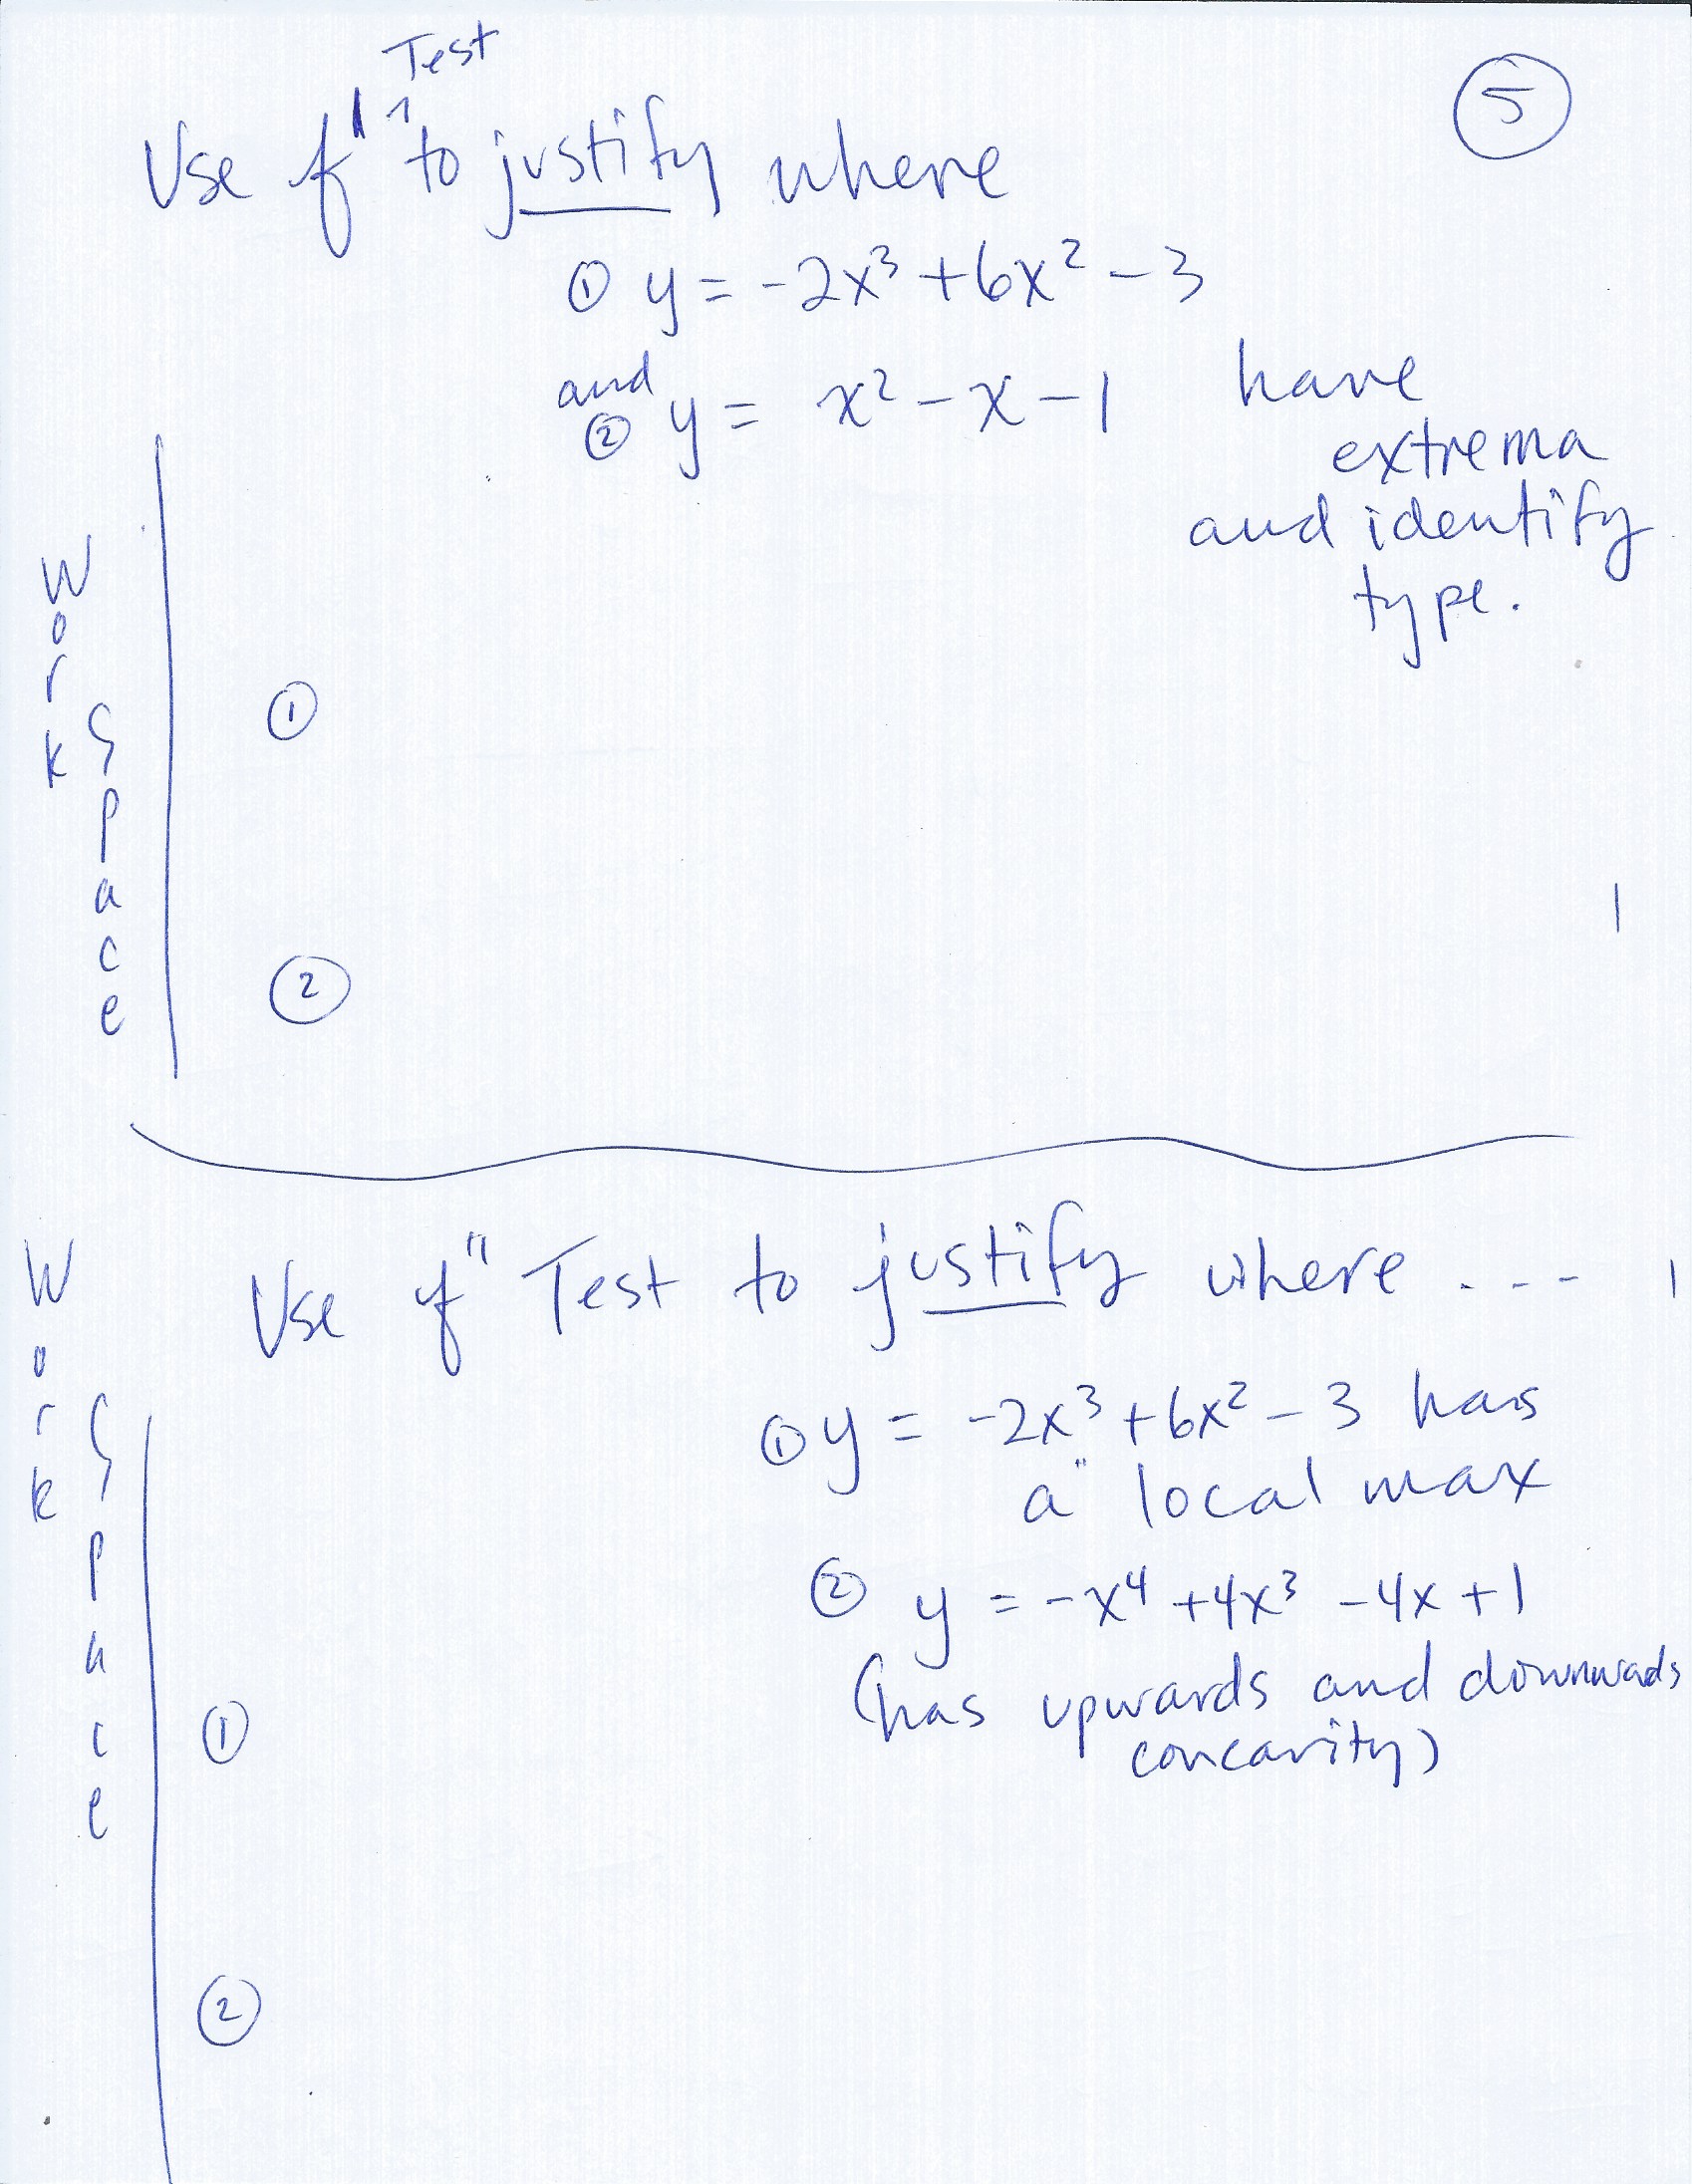 Test
5
Use f' ^ to justify where
① y = -2x³ + 6x² - 3
and
② y = x² - x - 1 have
extrema
and identify
type.
Work Space
①
②
Use f" Test to justify where ...
① y = -2x³ + 6x² - 3 has
a" local max
② y = -x⁴ + 4x³ - 4x + 1
(has upwards and downwads
concavity)
Work Space
①
②